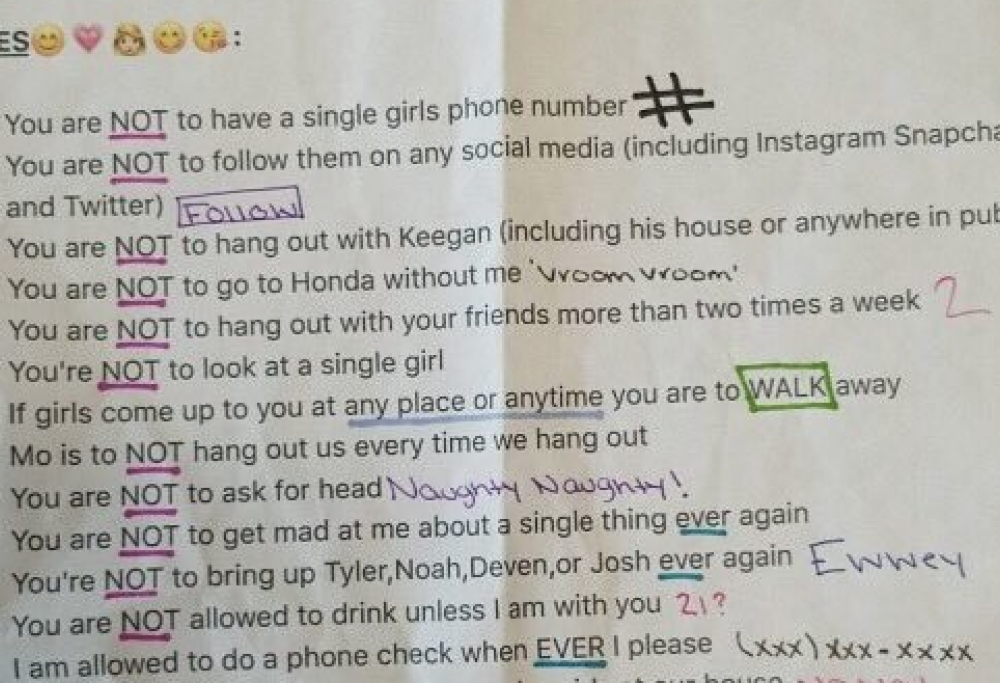 ES😊💗👸😊😘:
You are NOT to have a single girls phone number #
You are NOT to follow them on any social media (including Instagram Snapcha
and Twitter) Follow
You are NOT to hang out with Keegan (including his house or anywhere in pub
You are NOT to go to Honda without me 'Vroom Vroom'
You are NOT to hang out with your friends more than two times a week 2
You're NOT to look at a single girl
If girls come up to you at any place or anytime you are to WALK away
Mo is to NOT hang out us every time we hang out
You are NOT to ask for head Naughty Naughty!
You are NOT to get mad at me about a single thing ever again
You're NOT to bring up Tyler,Noah,Deven,or Josh ever again Ewwey
You are NOT allowed to drink unless I am with you 21?
I am allowed to do a phone check when EVER I please (xxx) xxx-xxxx